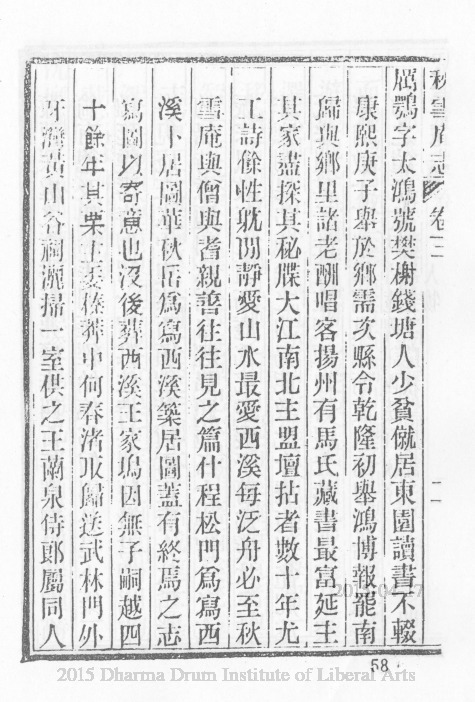 秋雪庵志 卷二
厲鶚字太鴻號樊榭錢塘人少貧僦居東園讀書不輟
康熙庚子舉於鄉需次縣令乾隆初舉鴻博報罷南
歸與鄉里諸老酬唱客揚州有馬氏藏書最富延主
其家盡探其秘牒大江南北主盟壇坫者數十年尤
工詩餘性躭閒靜愛山水最愛西溪每泛舟必至秋
雪庵與僧與耆親善往往見之篇什程松門爲寫西
溪卜居圖華秋岳爲寫西溪築居圖蓋有終焉之志
寫圖以寄意也沒後葬西溪王家塢因無子嗣越四
十餘年其栗主委榛莽中何春渚取歸送武林門外
牙灣黃山谷祠灑掃一室供之王蘭泉侍郎屬同人
58
2015 Dharma Drum Institute of Liberal Arts